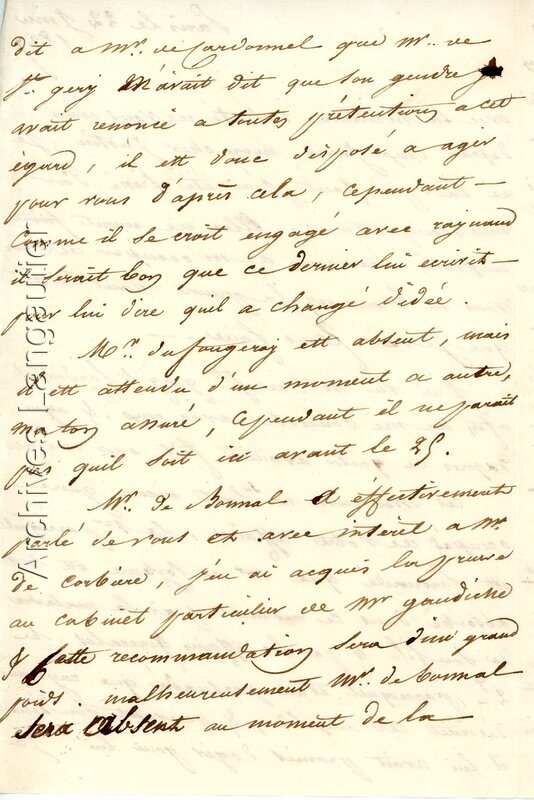 dit a Mr. de Cardonnel que Mr. de
St. gery m'avait dit que son gendre
avait renoncé a toutes prétentions a cet
égard, il est donc disposé a agir
pour vous d'après cela, cependant –
comme il se croit engagé avec raynaud
il serait bon que ce dernier lui ecrivit –
pour lui dire quil a changé didée.
Mr. dufougeray est absent, mais
il est attendu d'un moment a autre,
ma ton assuré, cependant il ne parait
pas quil soit ici avant le 25.
Mr. de Bonnal a éffectivement
parlé de vous et avec intérêt a Mr
de corbiere, j'en ai acquis la preuve
au cabinet particulier de Mr gaudiche
& cette recommandation sera d'un grand
poids. malheureusement Mr. de bonnal
sera absent au moment de la
Archives Langautier